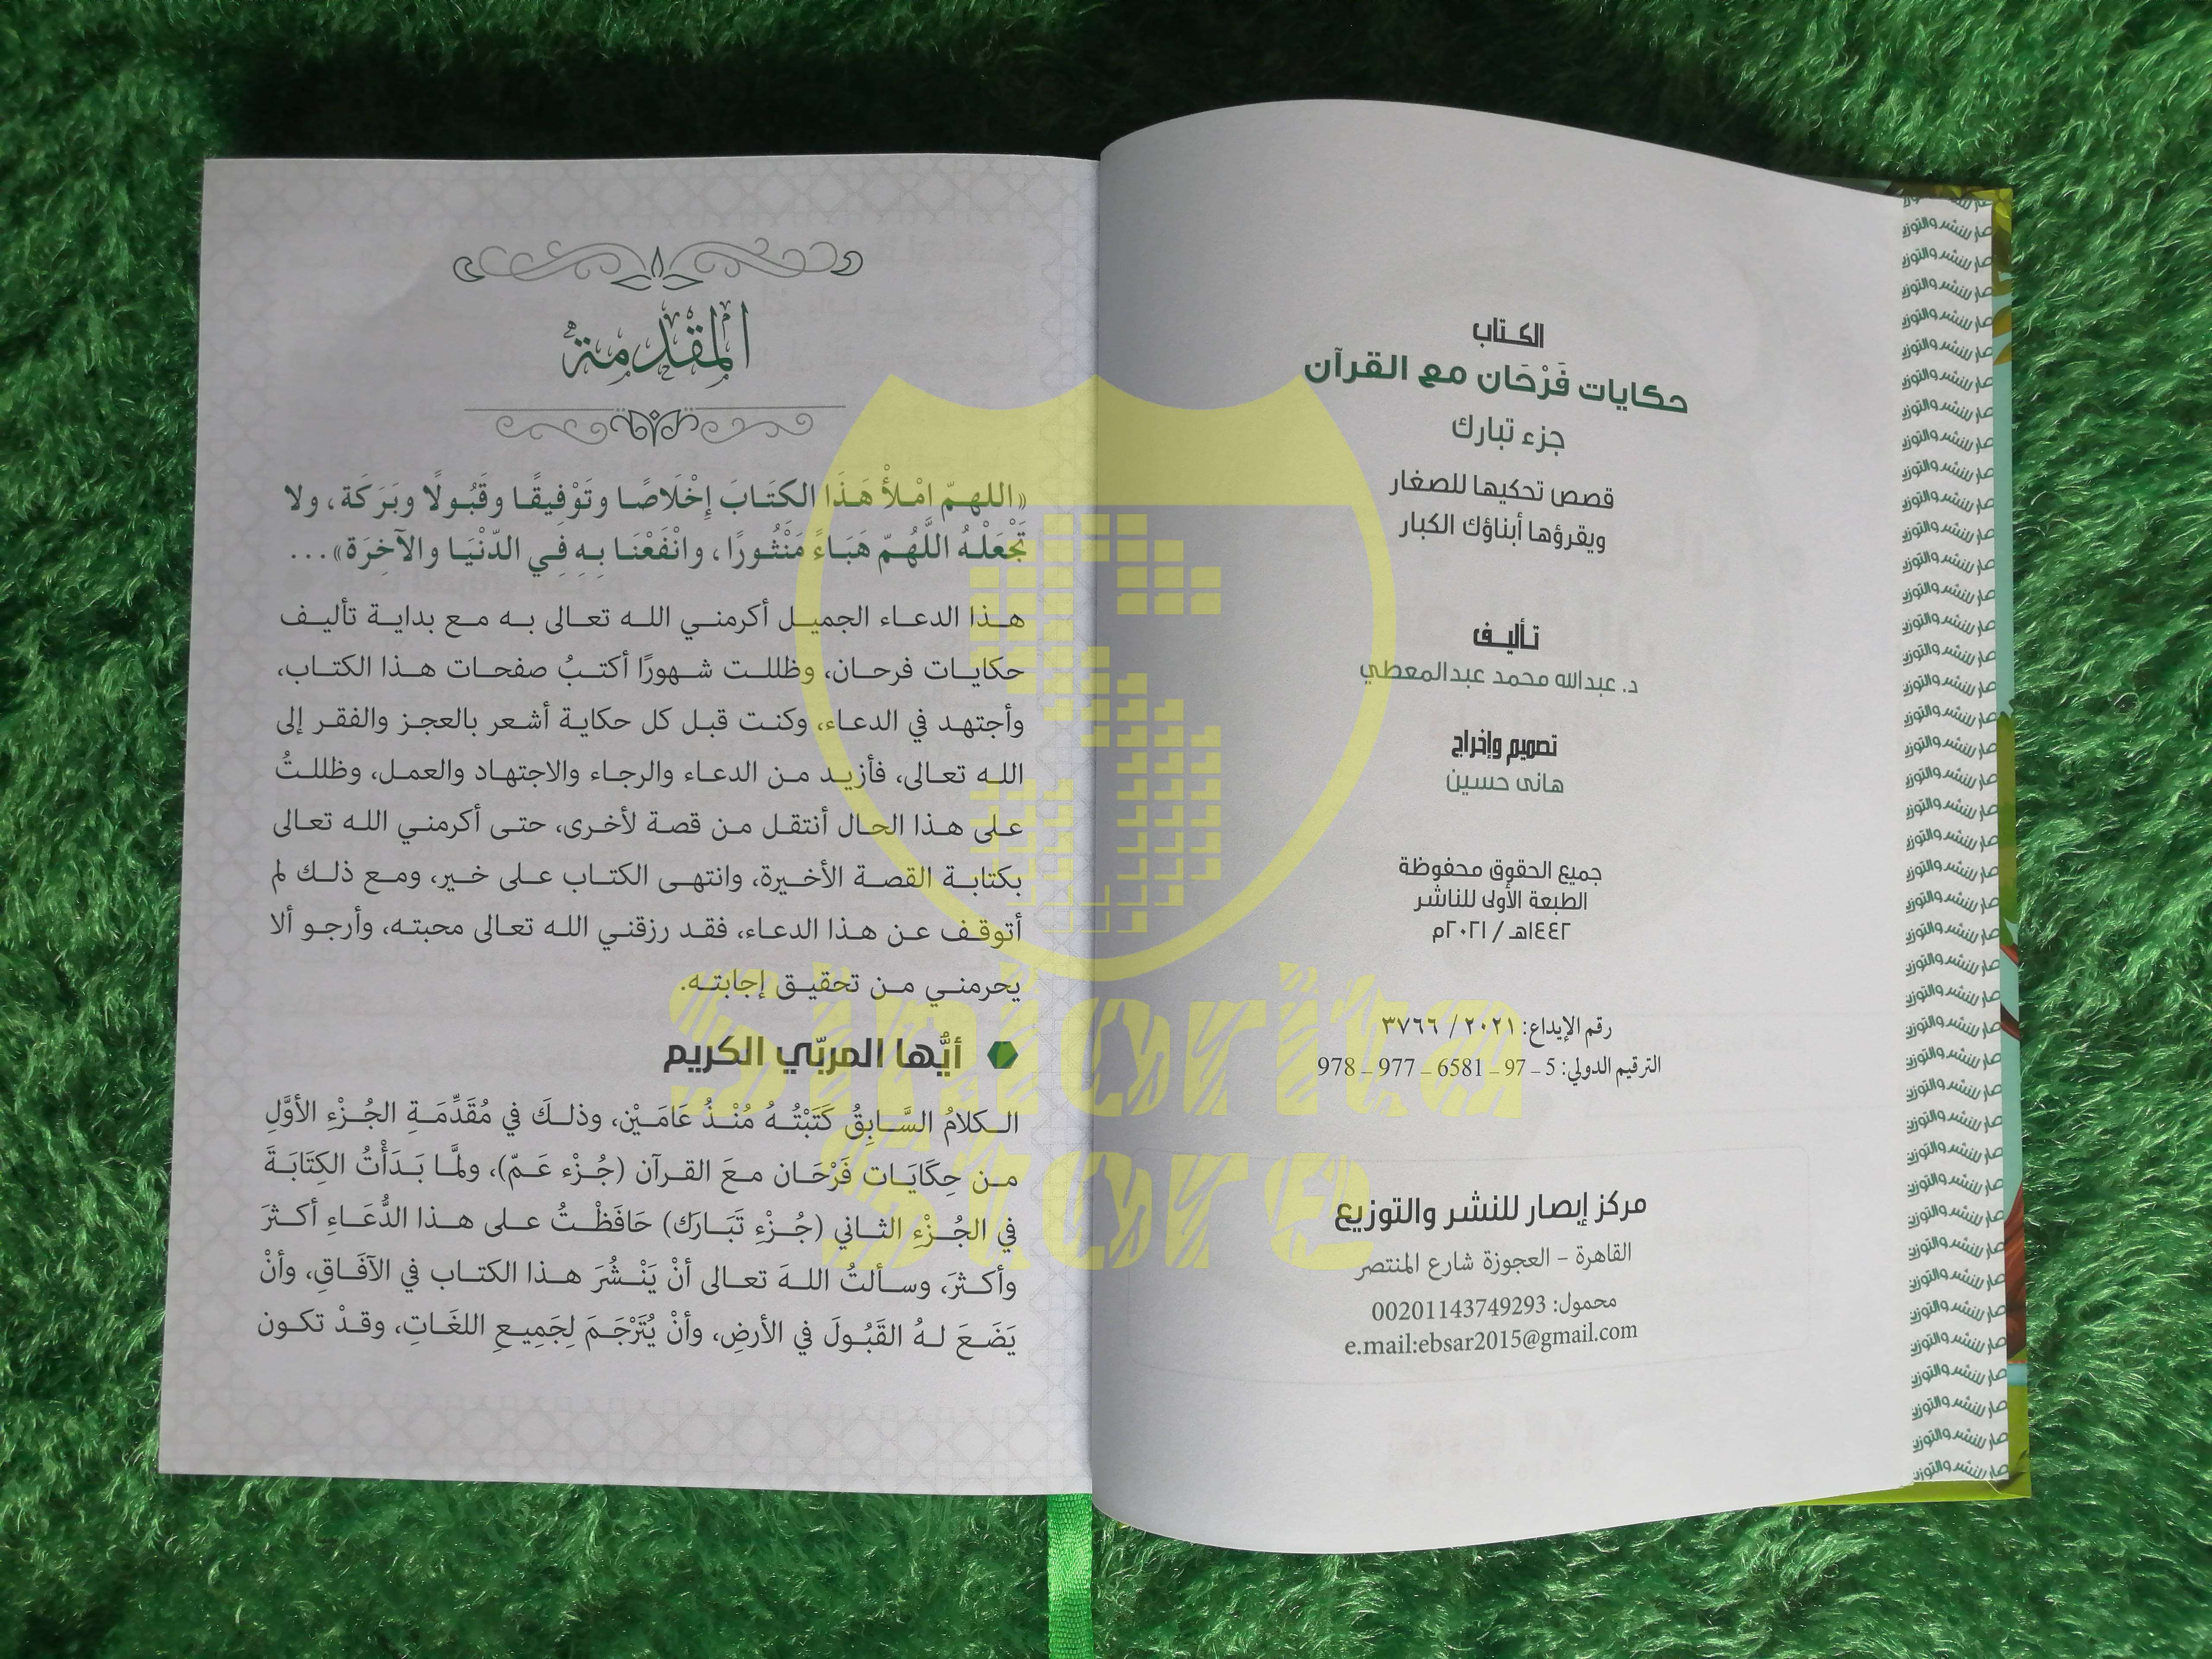 الكتاب
حكايات فَرْحَان مع القرآن
جزء تبارك
قصص تحكيها للصغار
ويقرؤها أبناؤك الكبار
تأليف
د. عبدالله محمد عبدالمعطي
تصميم وإخراج
هانى حسين
جميع الحقوق محفوظة
الطبعة الأولى للناشر
١٤٤٢هـ / ٢٠٢١م
رقم الإيداع: ٢٠٢١ / ٣٧٦٦
الترقيم الدولي: 5 – 97 – 6581 – 977 – 978
مركز إبصار للنشر والتوزيع
القاهرة - العجوزة شارع المنتصر
محمول: 00201143749293
e.mail:ebsar2015@gmail.com
المقدمة
«اللهمّ امْلأْ هَذَا الكتَابَ إِخْلَاصًا وتَوْفِيقًا وقَبُولًا وبَرَكَة، ولا
تَجْعَلْهُ اللَّهُمّ هَبَاءً مَنْثُورًا، وانْفَعْنَا بِهِ فِي الدّنْيَا والآخِرَة»...
هذا الدعاء الجميل أكرمني الله تعالى به مع بداية تأليف
حكايات فرحان، وظللت شهورًا أكتبُ صفحات هذا الكتاب،
وأجتهد في الدعاء، وكنت قبل كل حكاية أشعر بالعجز والفقر إلى
الله تعالى، فأزيد من الدعاء والرجاء والاجتهاد والعمل، وظللتُ
على هذا الحال أنتقل من قصة لأخرى، حتى أكرمني الله تعالى
بكتابة القصة الأخيرة، وانتهى الكتاب على خير، ومع ذلك لم
أتوقف عن هذا الدعاء، فقد رزقني الله تعالى محبته، وأرجو ألا
يحرمني من تحقيق إجابته.
أيُّها المربّي الكريم
الكلامُ السَّابِقُ كَتَبْتُهُ مُنْذُ عَامَيْن، وذلكَ في مُقَدِّمَةِ الجُزْءِ الأوَّلِ
من حِكَايَات فَرْحَان معَ القرآن (جُزْء عَمّ)، ولمَّا بَدَأْتُ الكِتَابَةَ
في الجُزْءِ الثاني (جُزْء تَبَارَك) حَافَظْتُ على هذا الدُّعَاءِ أكثرَ
وأكثرَ، وسألتُ اللهَ تعالى أنْ يَنْشُرَ هذا الكتاب في الآفَاقِ، وأنْ
يَضَعَ لهُ القَبُولَ في الأرضِ، وأنْ يُتَرْجَمَ لِجَمِيعِ اللغَاتِ، وقدْ تكون
Siniorita
Store